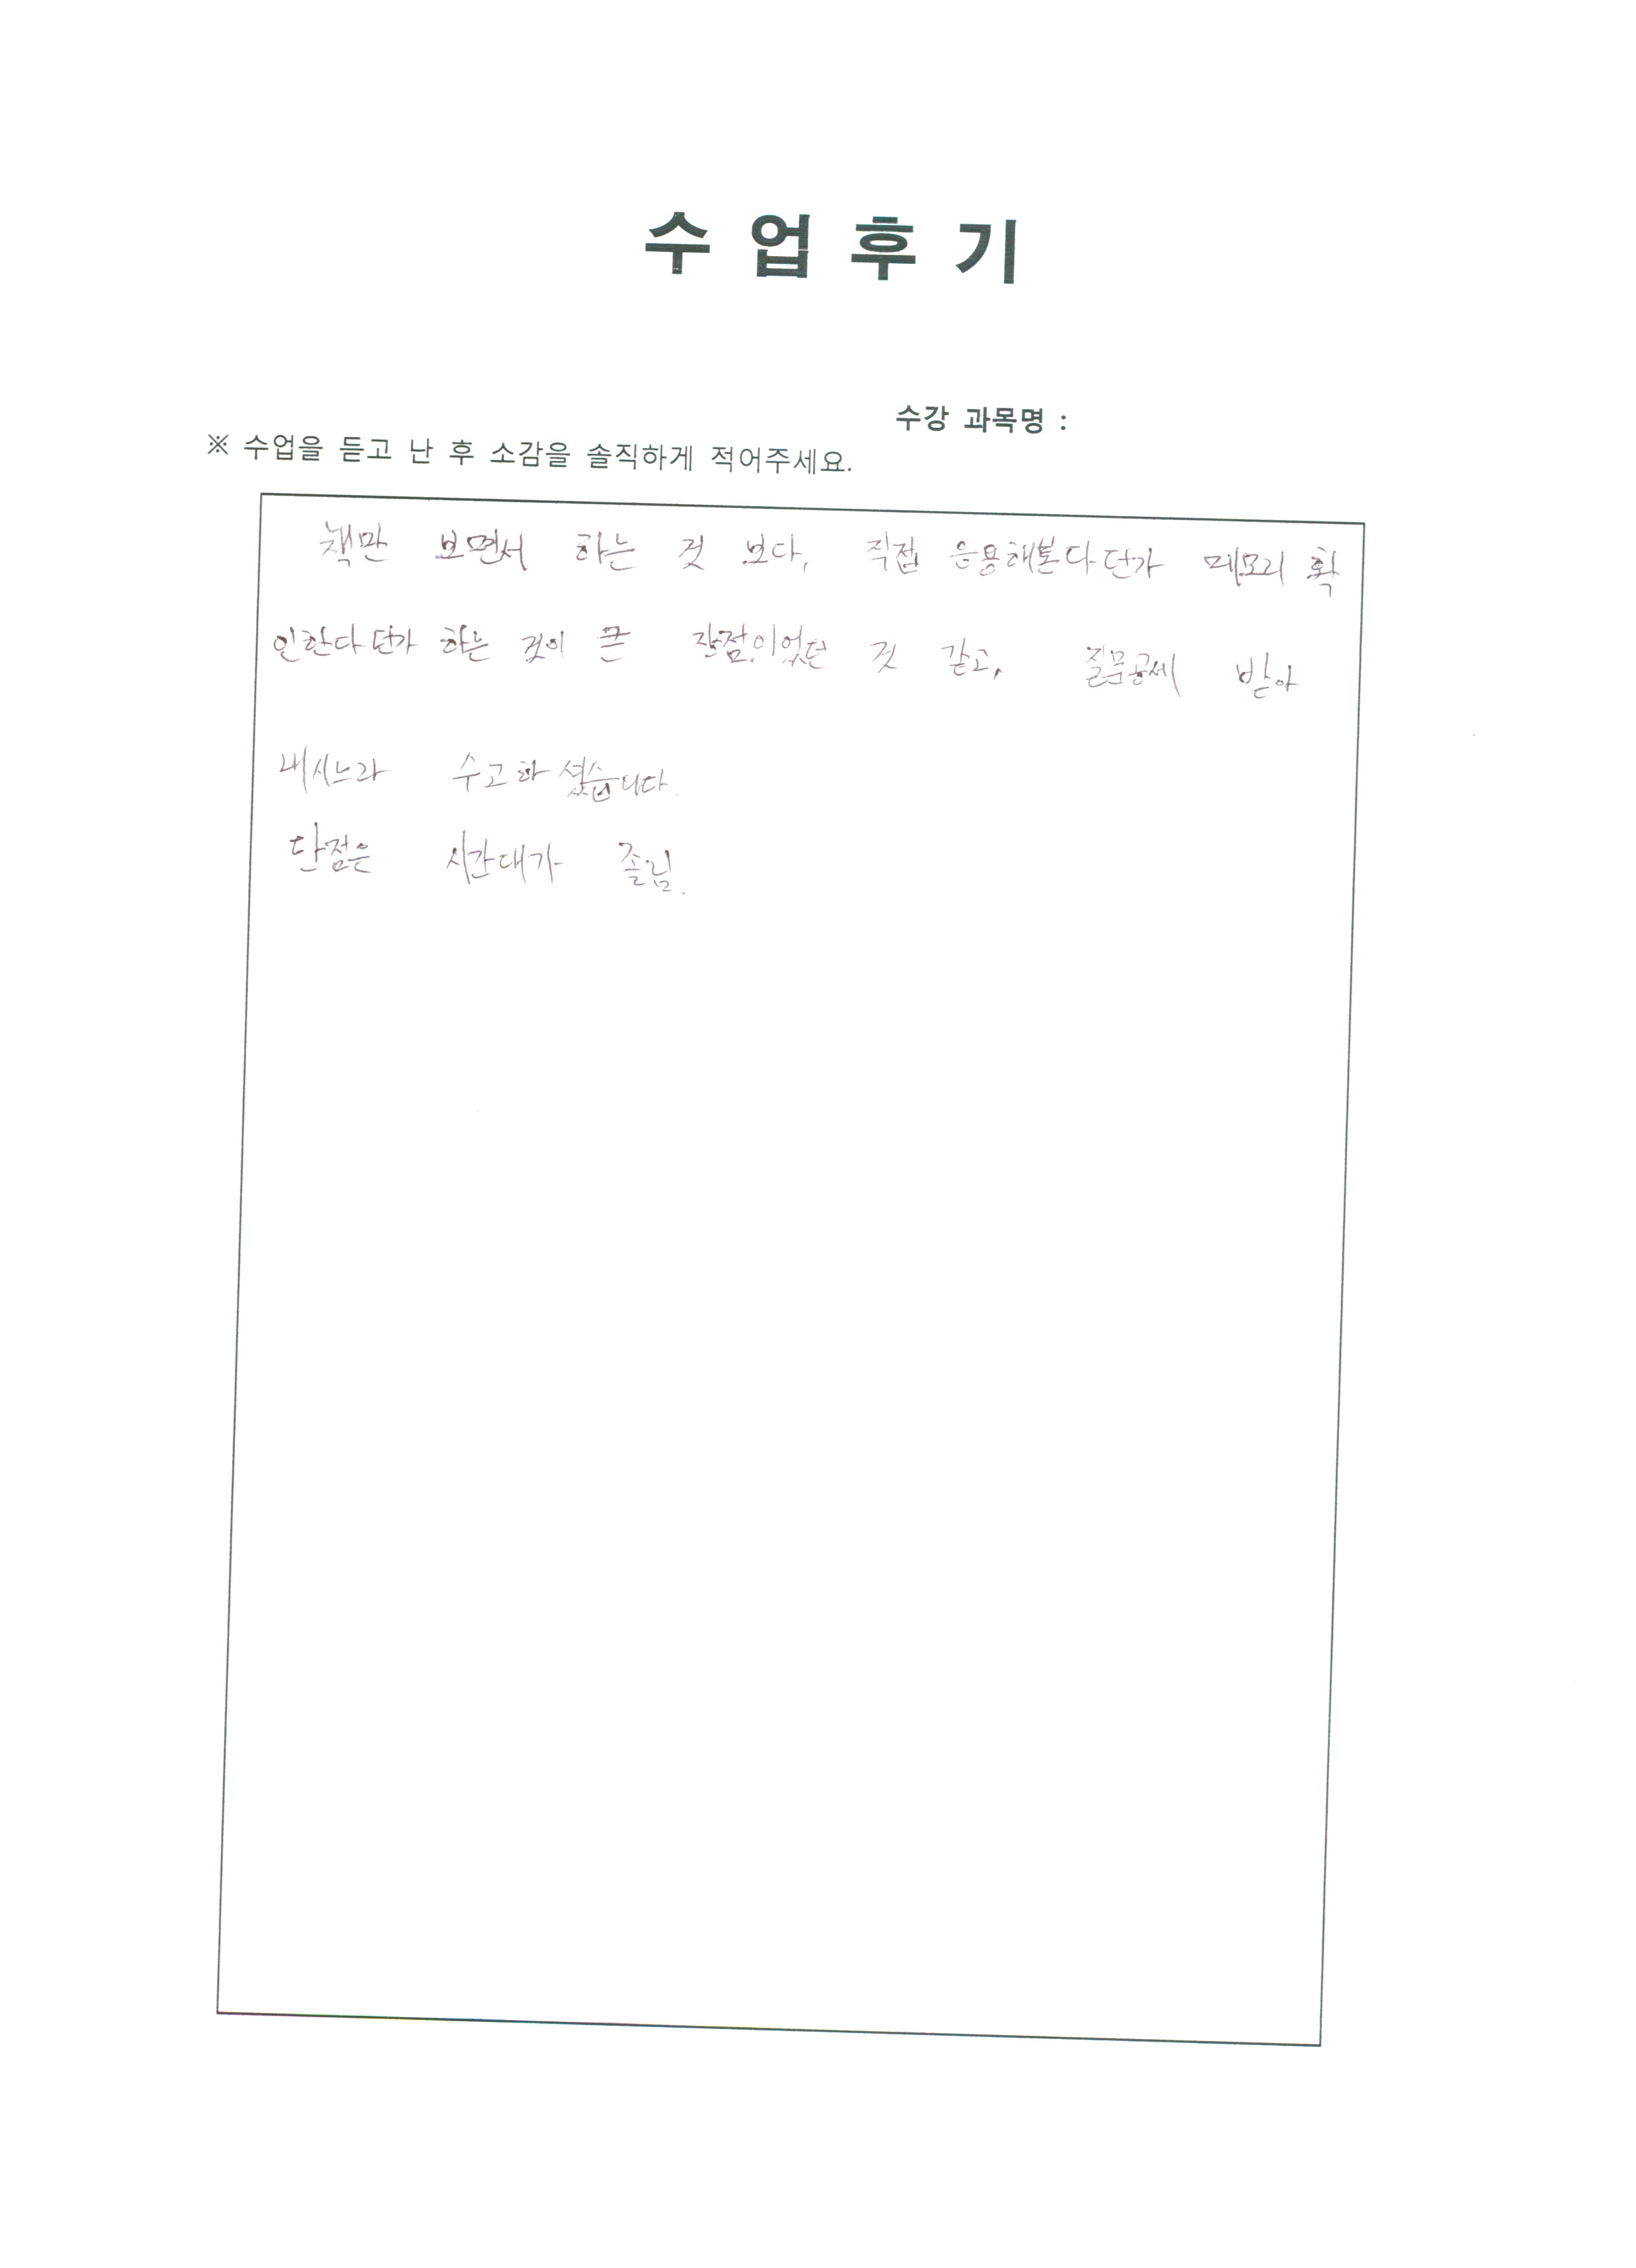 수 업 후 기
수강 과목명 :
※ 수업을 듣고 난 후 소감을 솔직하게 적어주세요.
책만 보면서 하는 것 보다, 직접 응용해본다던가 메모리 확
인한다던가 하는 것이 큰 장점이었던 것 같고, 질문공세 받아
내시느라 수고하셨습니다.
단점은 시간대가 졸림.